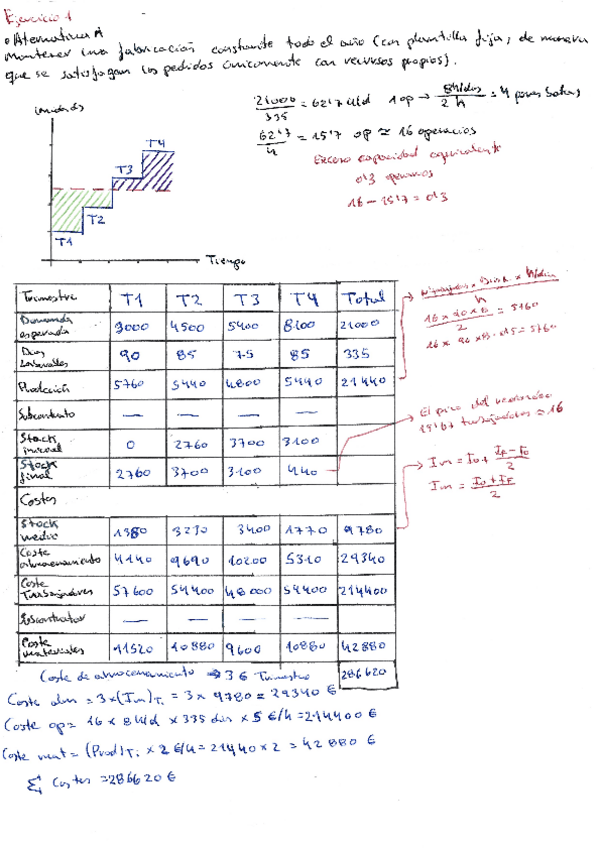 Ejercicio 1
• Alternativa A
Mantener una fabricación constante todo el año (con plantilla fija, de manera
que se satisfagan los pedidos únicamente con recursos propios).
21000/335 = 62'7 u/d 1 op → 8h/dia/2h = 4
62'7/4 = 15'7 op ≈ 16 operarios
Exceso capacidad equivalente
0'3 operarios
16 - 15'7 = 0'3
unidades
T4
T3
T2
T1
Tiempo
Trimestre T1 T2 T3 T4 Total
Demanda esperada 3000 4500 5400 8100 21000
Dias laborales 90 85 75 85 335
Producción 5760 5440 4800 5440 21440
Subcontrato — — — —
Stock inicial 0 2760 3700 3100
Stock final 2760 3700 3100 440
Costes
Stock medio 1380 3230 3400 1770 9780
Coste almacenamiento 4140 9690 10200 5310 29340
Coste Trabajadores 57600 54400 48000 54400 214400
Subcontratar — — — —
Coste materiales 11520 10880 9600 10880 42880
286620
16 x 90 x 8/2 = 5760
16 x 90 x 8 · 0'5 = 5760
El pico del
15'67 trabajadores ≈ 16
Im = Io + (IF - Io)/2
Im = (Io + IF)/2
Coste de almacenamiento → 3 € Trimestre
Coste alm = 3 x (Im)Ti = 3 x 9780 = 29340 €
Coste op = 16 x 8 h/d x 335 dias x 5 €/h = 214400 €
Coste mat = (Prod)Ti x 2 €/u = 21440 x 2 = 42880 €
Σ Costes = 286620 €